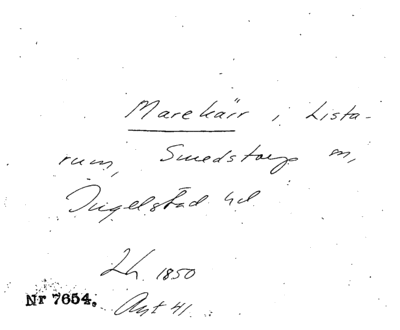 Marekärr i Lista-
rum, Smedstorp sn,
Ingelstad hd
Lh. 1850
Nr 7654. Ant 41